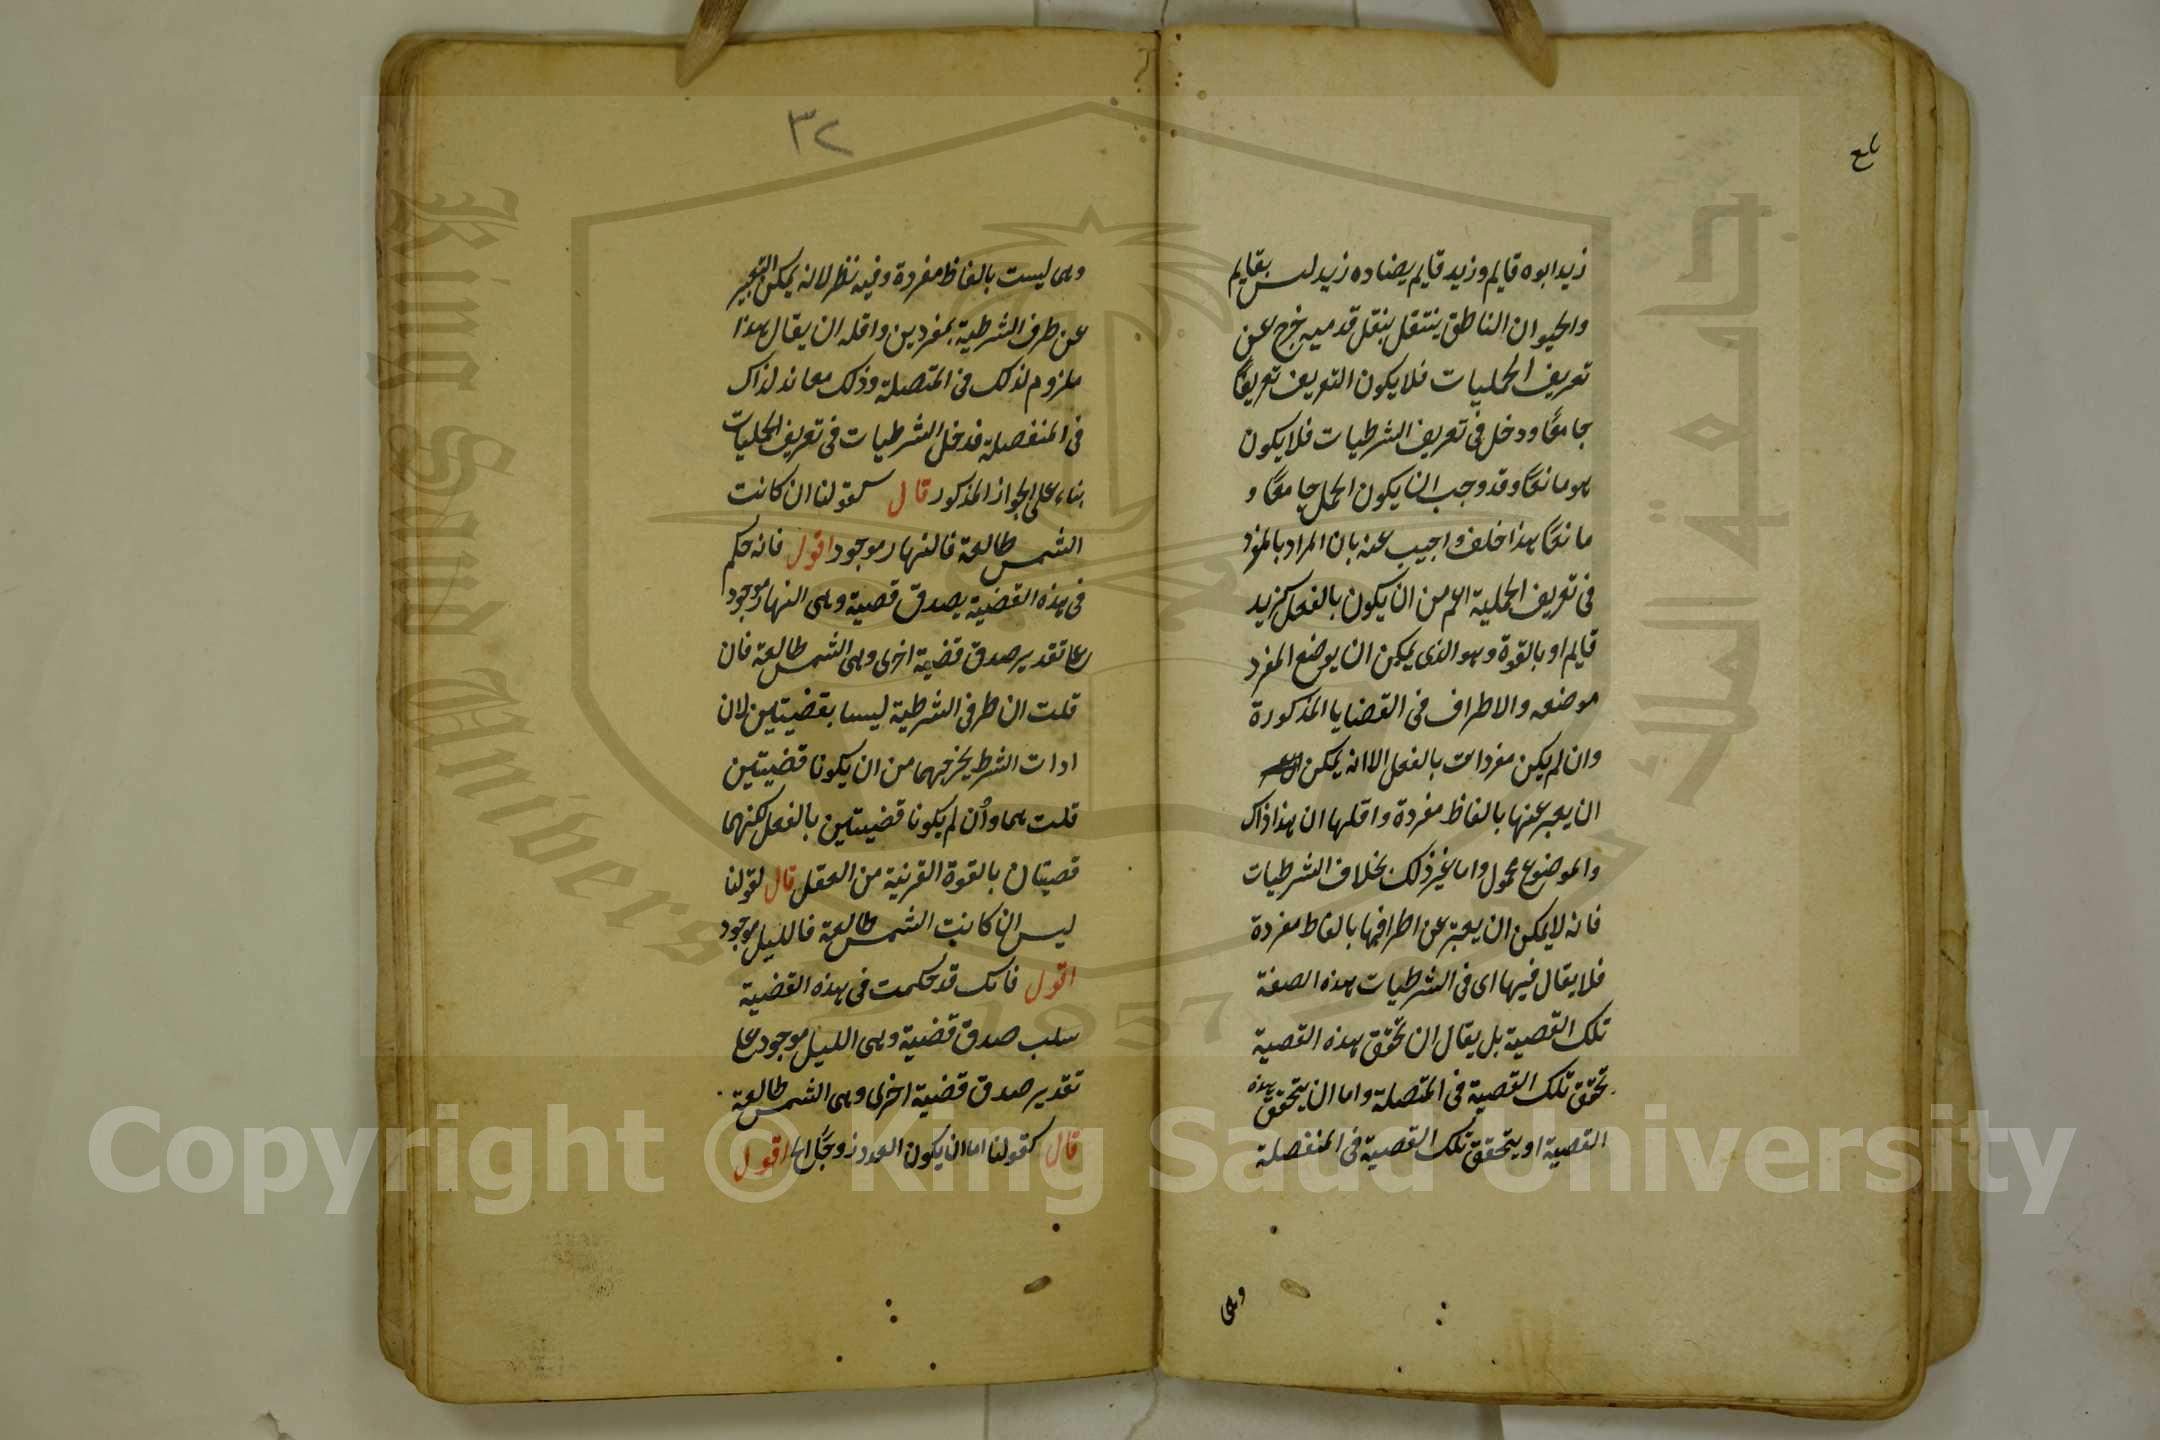 زيد ابوه قايم وزيد قايم يضاده زيد ليس بقايم
والحيوان الناطق ينتقل بنقل قدميه خرج عن
تعريف الحمليات فلا يكون التعريف تعريفًا
جامعًا ودخل في تعريف الشرطيات فلا يكون
هو مانعًا وقد وجب ان يكون الحمل جامعًا و
مانعًا هذا خلف واجيب عنه بان المراد بالمفرد
في تعريف الحملية اعم من ان يكون بالفعل كزيد
قايم او بالقوة وهو الذي يمكن ان يوضع المفرد
موضعه والاطراف في القضايا المذكورة
وان لم يكن مفردات بالفعل الا انه يمكن
ان يعبر عنها بالفاظ مفردة واقلها ان هذا ذاك
والموضوع محمول واما غير ذلك بخلاف الشرطيات
فانه لا يمكن ان يعبر عن اطرافها بالفاظ مفردة
فلا يقال فيها اي في الشرطيات هذه الصفة
تلك القصية بل يقال ان تحقق هذه القصية
تحقق تلك القصية في المتصلة واما ان يتحقق هذه
القصية او يتحقق تلك القصية في المنفصلة
وهي
٣٢
وهي ليست بالفاظ مفردة وفيه نظر لانه يمكن التعبير
عن طرف الشرطية بمفردين واقله ان يقال هذا
ملزوم لذلك في المتصلة وذلك معاند لذاك
في المنفصلة فدخل الشرطيات في تعريف الحمليات
بناء على الجواز المذكور قال كقولنا ان كانت
الشمس طالعة فالنهار موجود اقول فانه حكم
في هذه القضية بصدق قصية وهي النهار موجود
على تقدير صدق قضية اخرى وهي الشمس طالعة فان
قلت ان طرفي الشرطية ليسا بقضيتين لان
ادات الشرط يخرجهما من ان يكونا قضيتين
قلت هما وان لم يكونا قضيتين بالفعل لكنهما
قصيتان بالقوة القريبة من العقل قال لقولنا
ليس ان كانت الشمس طالعة فالليل موجود
اقول فانك قد حكمت في هذه القضية
سلب صدق قضية وهي الليل موجود على
تقدير صدق قضية اخرى وهي الشمس طالعة
قال كقولنا اما ان يكون العدد زوجًا الخ اقول
Copyright © King Saud University
King Saud University
جامعة الملك
1957